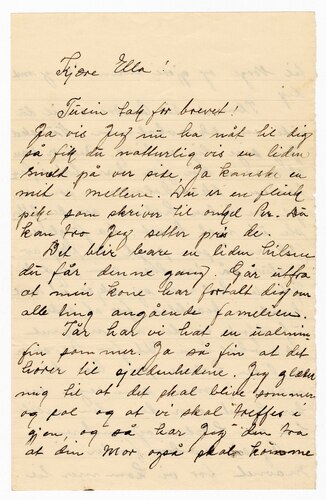 Kjære Ella!
Tusin tak for brevet!
Ja vis jeg nu ha nåt til dig
så fik du natturlig vis en liden
smelt på ver side, ja kanske en
mit i mellem. Du er en flink
pike som skriver til onkel Per. Du
kan tro jeg setter pris de.
Det blir bare en liden hilsen
du får denne gang. Går utfra
at min kone har fortalt dig om
alle ting angående familien.
I år har vi hat en ualmin
fin sommer. Ja så fin at det
hører til sjeldenhedene. Jeg glæder
mig til at det skal blive sommer
og sol og at vi skal treffes i
gjen, og så har jeg den tro
at din Mor også skal komme